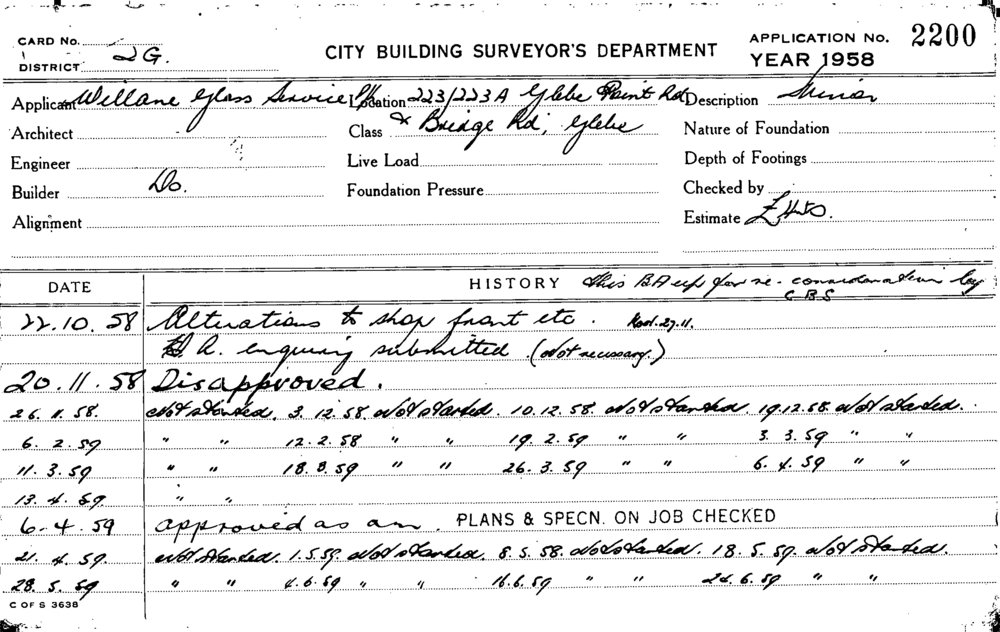 CARD No.
DISTRICT 2G.
CITY BUILDING SURVEYOR'S DEPARTMENT
APPLICATION No. 2200
YEAR 1958
Applicant Willane Glass Service P/L Location 223/223A Glebe Point Rd Description Minor
Architect Class & Bridge Rd, Glebe Nature of Foundation
Engineer Live Load Depth of Footings
Builder Do. Foundation Pressure Checked by
Alignment Estimate £
DATE HISTORY this BA up for re-consideration by C.B.S
22.10.58 Alterations to shop front etc. 27.11.
H.A. enquiry submitted. (Not necessary.)
20.11.58 Disapproved.
26.11.58. Not started. 3.12.58. Not started. 10.12.58. Not started. 19.12.58. Not started.
6.2.59 " " 12.2.58 " " 19.2.59 " " 3.3.59 " "
11.3.59 " " 18.3.59 " " 26.3.59 " " 6.4.59 " "
13.4.59. " "
6.4.59 approved as am. PLANS & SPECN. ON JOB CHECKED
21.4.59. Not started. 1.5.59. Not started. 8.5.58. Not started. 18.5.59. Not started.
28.5.59 " " 4.6.59 " " 16.6.59 " " 24.6.59 " "
C OF S 3638